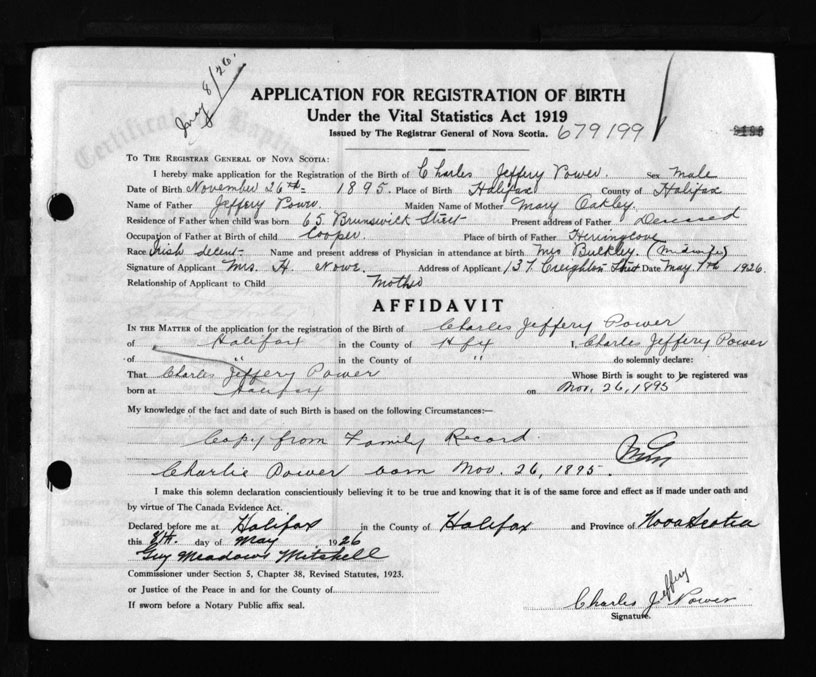 May 8/26.
APPLICATION FOR REGISTRATION OF BIRTH
Under the Vital Statistics Act 1919
Issued by The Registrar General of Nova Scotia. 679199
TO THE REGISTRAR GENERAL OF NOVA SCOTIA:
I hereby make application for the Registration of the Birth of Charles Jeffery Power. Sex Male
Date of Birth November 26th 1895. Place of Birth Halifax County of Halifax
Name of Father Jeffery Power. Maiden Name of Mother Mary Oakley.
Residence of Father when child was born 65 Brunswick Street Present address of Father Deceased
Occupation of Father at Birth of child Cooper. Place of birth of Father Herring Cove
Race Irish decent Name and present address of Physician in attendance at birth Mrs Bulkley. (Midwife)
Signature of Applicant Mrs. H. Nowe. Address of Applicant 137 Creighton Street Date May 7th 1926.
Relationship of Applicant to Child Mother
AFFIDAVIT
IN THE MATTER of the application for the registration of the Birth of Charles Jeffery Power
of Halifax in the County of Hfx I, Charles Jeffery Power
of " in the County of " do solemnly declare:
That Charles Jeffery Power Whose Birth is sought to be registered was
born at Halifax on Nov. 26, 1895
My knowledge of the fact and date of such Birth is based on the following Circumstances:—
Copy from Family Record.
Charlie Power born Nov. 26, 1895.
I make this solemn declaration conscientiously believing it to be true and knowing that it is of the same force and effect as if made under oath and
by virtue of The Canada Evidence Act.
Declared before me at Halifax in the County of Halifax and Province of Nova Scotia
this 8th. day of May 1926
Guy Meadows Mitchell
Commissioner under Section 5, Chapter 38, Revised Statutes, 1923.
or Justice of the Peace in and for the County of
If sworn before a Notary Public affix seal.
Charles Jeffery Power
Signature.